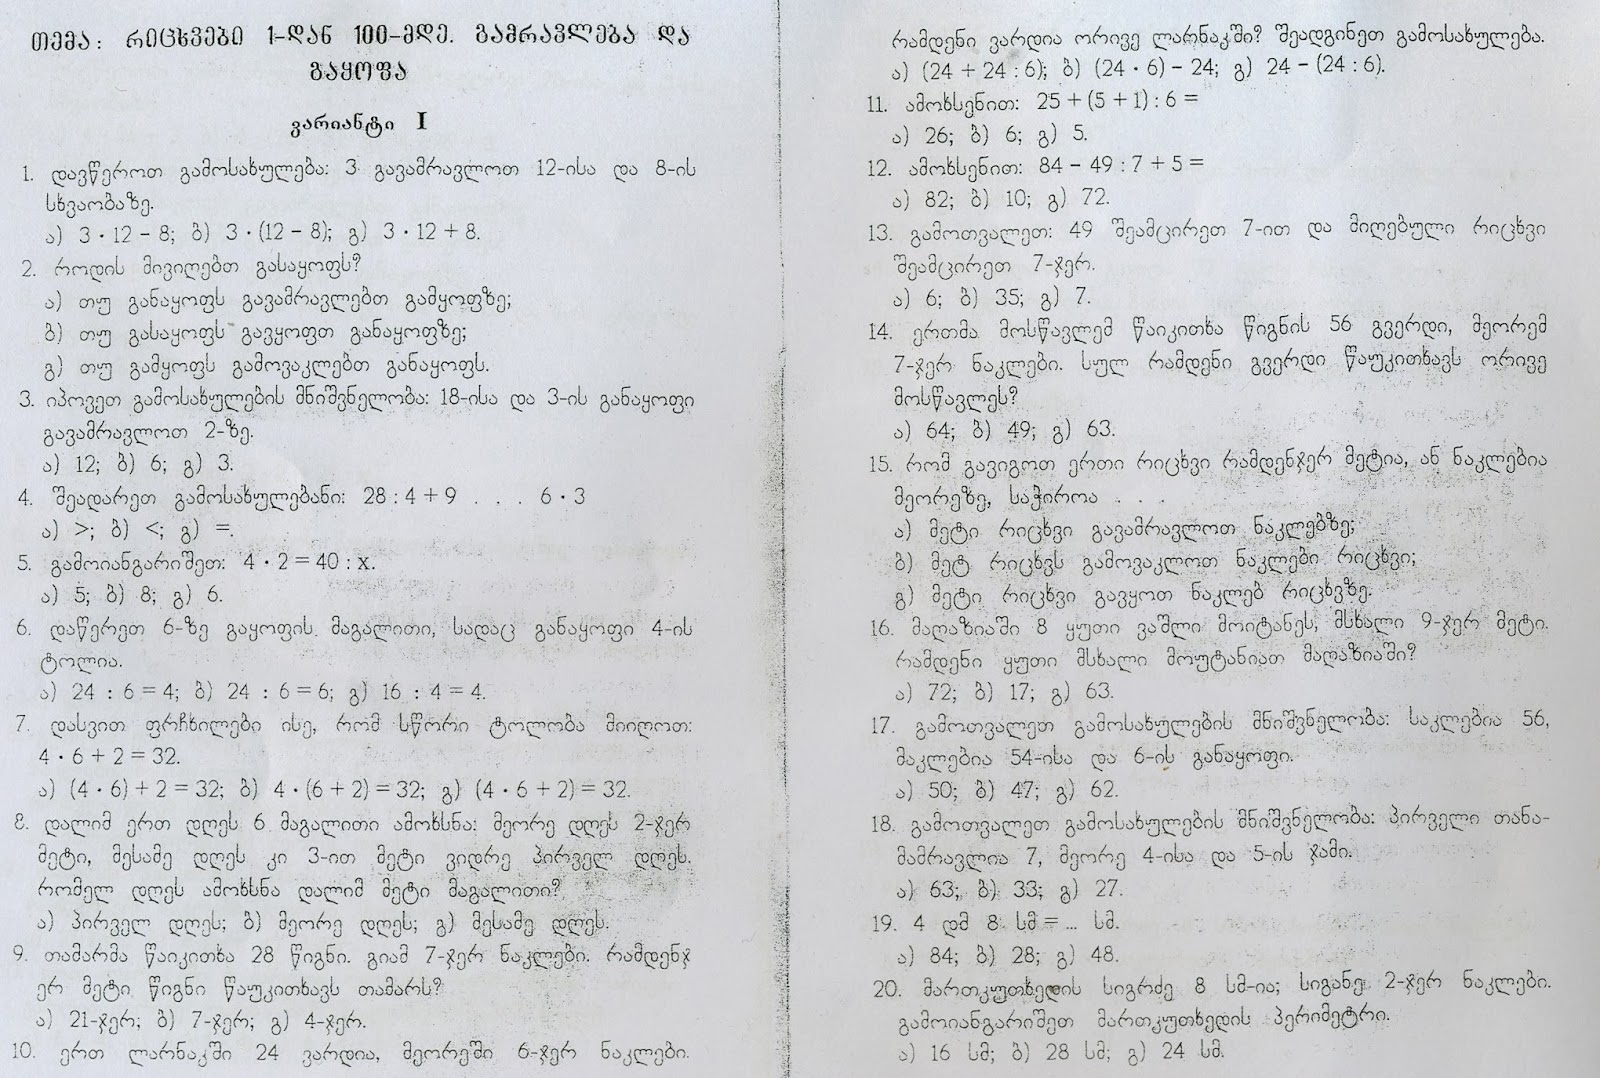 თემა: რიცხვები 1-დან 100-მდე. გამრავლება და
გაყოფა
ვარიანტი I
1. დავწეროთ გამოსახულება: 3 გავამრავლოთ 12-ისა და 8-ის
სხვაობაზე.
ა) 3 · 12 – 8; ბ) 3 · (12 – 8); გ) 3 · 12 + 8.
2. როდის მივიღებთ გასაყოფს?
ა) თუ განაყოფს გავამრავლებთ გამყოფზე;
ბ) თუ გასაყოფს გავყოფთ განაყოფზე;
გ) თუ გამყოფს გამოვაკლებთ განაყოფს.
3. იპოვეთ გამოსახულების მნიშვნელობა: 18-ისა და 3-ის განაყოფი
გავამრავლოთ 2-ზე.
ა) 12; ბ) 6; გ) 3.
4. შეადარეთ გამოსახულებანი: 28 : 4 + 9 . . . 6 · 3
ა) >; ბ) <; გ) =.
5. გამოიანგარიშეთ: 4 · 2 = 40 : x.
ა) 5; ბ) 8; გ) 6.
6. დაწერეთ 6-ზე გაყოფის მაგალითი, სადაც განაყოფი 4-ის
ტოლია.
ა) 24 : 6 = 4; ბ) 24 : 6 = 6; გ) 16 : 4 = 4.
7. დასვით ფრჩხილები ისე, რომ სწორი ტოლობა მიიღოთ:
4 · 6 + 2 = 32.
ა) (4 · 6) + 2 = 32; ბ) 4 · (6 + 2) = 32; გ) (4 · 6 + 2) = 32.
8. დალიმ ერთ დღეს 6 მაგალითი ამოხსნა; მეორე დღეს 2-ჯერ
მეტი, მესამე დღეს კი 3-ით მეტი ვიდრე პირველ დღეს.
რომელ დღეს ამოხსნა დალიმ მეტი მაგალითი?
ა) პირველ დღეს; ბ) მეორე დღეს; გ) მესამე დღეს.
9. თამარმა წაიკითხა 28 წიგნი. გიამ 7-ჯერ ნაკლები. რამდენჯ
ერ მეტი წიგნი წაუკითხავს თამარს?
ა) 21-ჯერ; ბ) 7-ჯერ; გ) 4-ჯერ.
10. ერთ ლარნაკში 24 ვარდია, მეორეში 6-ჯერ ნაკლები.
რამდენი ვარდია ორივე ლარნაკში? შეადგინეთ გამოსახულება.
ა) (24 + 24 : 6); ბ) (24 · 6) – 24; გ) 24 – (24 : 6).
11. ამოხსენით: 25 + (5 + 1) : 6 =
ა) 26; ბ) 6; გ) 5.
12. ამოხსენით: 84 – 49 : 7 + 5 =
ა) 82; ბ) 10; გ) 72.
13. გამოთვალეთ: 49 შეამცირეთ 7-ით და მიღებული რიცხვი
შეამცირეთ 7-ჯერ.
ა) 6; ბ) 35; გ) 7.
14. ერთმა მოსწავლემ წაიკითხა წიგნის 56 გვერდი, მეორემ
7-ჯერ ნაკლები. სულ რამდენი გვერდი წაუკითხავს ორივე
მოსწავლეს?
ა) 64; ბ) 49; გ) 63.
15. რომ გავიგოთ ერთი რიცხვი რამდენჯერ მეტია, ან ნაკლებია
მეორეზე, საჭიროა . . .
ა) მეტი რიცხვი გავამრავლოთ ნაკლებზე;
ბ) მეტ რიცხვს გამოვაკლოთ ნაკლები რიცხვი;
გ) მეტი რიცხვი გავყოთ ნაკლებ რიცხვზე.
16. მაღაზიაში 8 ყუთი ვაშლი მოიტანეს, მსხალი 9-ჯერ მეტი.
რამდენი ყუთი მსხალი მოუტანიათ მაღაზიაში?
ა) 72; ბ) 17; გ) 63.
17. გამოთვალეთ გამოსახულების მნიშვნელობა: საკლებია 56,
მაკლებია 54-ისა და 6-ის განაყოფი.
ა) 50; ბ) 47; გ) 62.
18. გამოთვალეთ გამოსახულების მნიშვნელობა: პირველი თანა-
მამრავლია 7, მეორე 4-ისა და 5-ის ჯამი.
ა) 63; ბ) 33; გ) 27.
19. 4 დმ 8 სმ = ... სმ.
ა) 84; ბ) 28; გ) 48.
20. მართკუთხედის სიგრძე 8 სმ-ია; სიგანე 2-ჯერ ნაკლები.
გამოიანგარიშეთ მართკუთხედის პერიმეტრი.
ა) 16 სმ; ბ) 28 სმ; გ) 24 სმ.